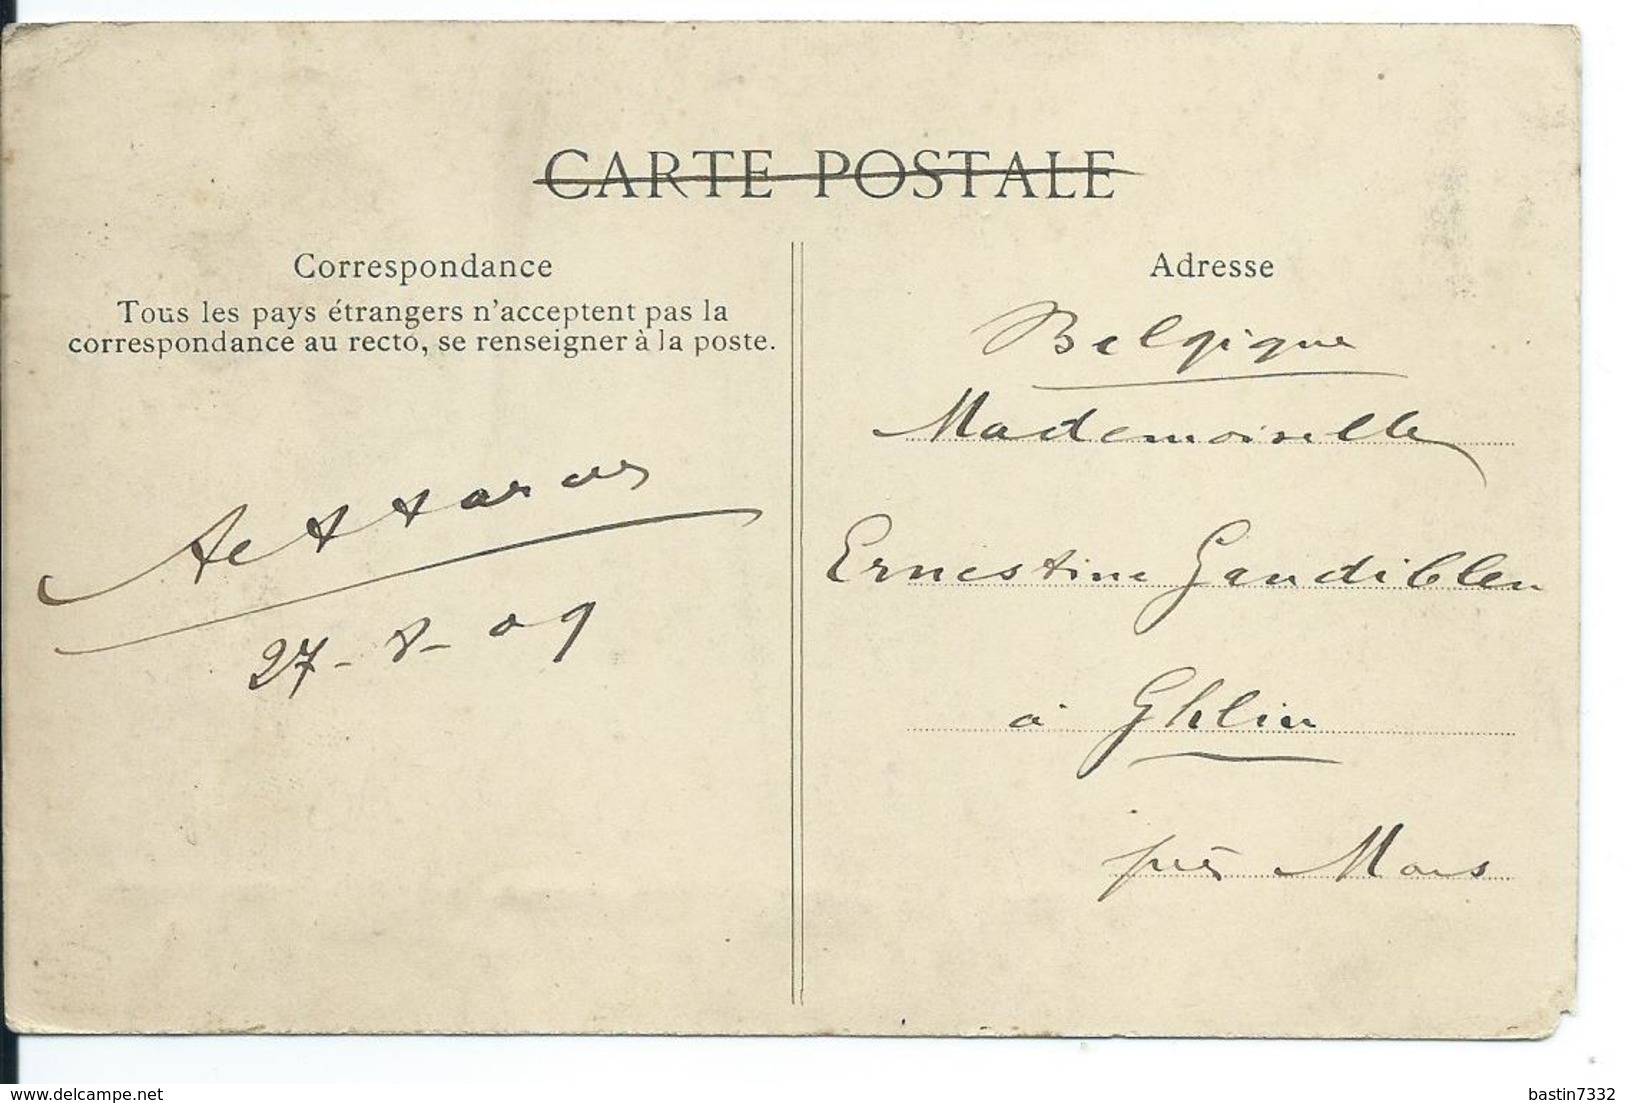 CARTE POSTALE
Correspondance
Tous les pays étrangers n'acceptent pas la
correspondance au recto, se renseigner à la poste.
27-8-09
Adresse
Belgique
Mademoiselle
Ernestine Gaudibleu
à Ghlin
près Mons
bastin7332